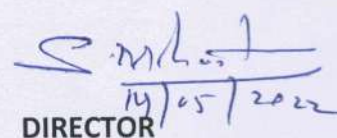 14/05/2022
DIRECTOR